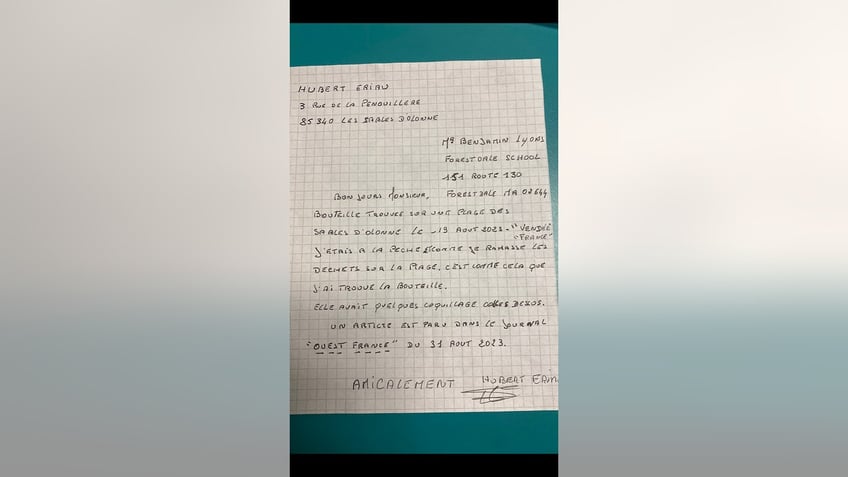 HUBERT ERIAU
3 RUE DE LA PENOUILLERE
85340 LES SABLES D'OLONNE
Mr BENJAMIN LYONS
FORESTDALE SCHOOL
151 ROUTE 130
BONJOURS MONSIEUR, FORESTDALE MA 02644
BOUTEILLE TROUVEE SUR UNE PLAGE DES
SABLES D'OLONNE LE 19 AOUT 2023. "VENDEE
"FRANCE"
J'ETAIS A LA PECHE COMME JE RAMASSE LES
DECHETS SUR LA PLAGE. C'EST COMME CELA QUE
J'AI TROUVE LA BOUTEILLE.
ELLE AVAIT QUELQUES COQUILLAGE COLLES DESUS.
UN ARTICLE EST PARU DANS LE JOURNAL
"OUEST FRANCE" DU 31 AOUT 2023.
AMICALEMENT HUBERT ERIA